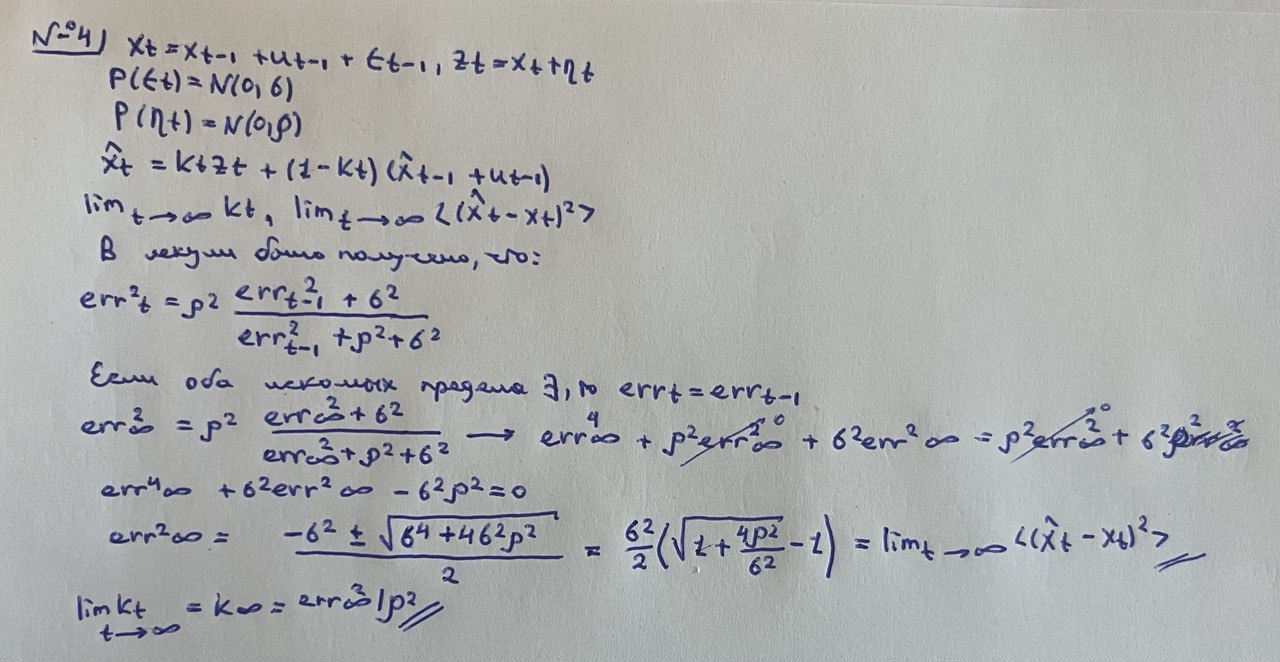 №4) xt = xt-1 + ut-1 + εt-1, zt = xt + ηt
P(εt) = N(0, σ)
P(ηt) = N(0, ρ)
x̂t = ktzt + (1 - kt)(x̂t-1 + ut-1)
lim t→∞ kt, lim t→∞ <(x̂t - xt)²>
В лекции было получено, что:
err²t = ρ² (err²t-1 + σ²) / (err²t-1 + ρ² + σ²)
Если оба искомых предела ∃, то errt = errt-1
err²∞ = ρ² (err²∞ + σ²) / (err²∞ + ρ² + σ²) → err⁴∞ + ρ²err²∞ + σ²err²∞ = ρ²err²∞ + σ²ρ²
err⁴∞ + σ²err²∞ - σ²ρ² = 0
err²∞ = (-σ² ± √(σ⁴ + 4σ²ρ²)) / 2 = σ²/2 (√(1 + 4ρ²/σ²) - 1) = lim t→∞ <(x̂t - xt)²>
lim kt t→∞ = k∞ = err²∞/ρ²